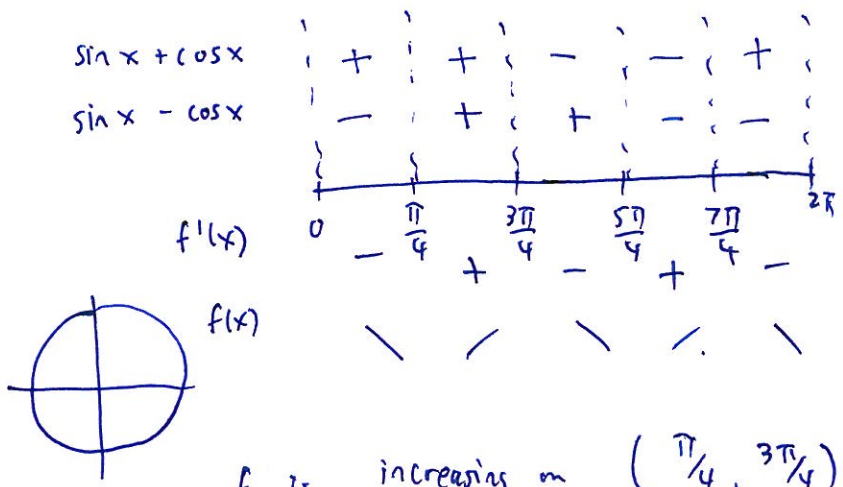 sin x + cos x + + − − +
sin x − cos x − + + − −
0 π/4 3π/4 5π/4 7π/4 2π
f'(x) − + − + −
f(x)
f is increasing on (π/4, 3π/4)